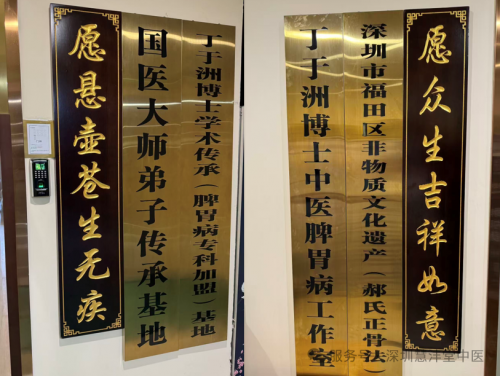 愿悬壶苍生无疾
国医大师弟子传承基地
丁于洲博士学术传承（脾胃病专科加盟）基地
丁于洲博士中医脾胃病工作室
深圳市福田区非物质文化遗产（郝氏正骨法）
愿众生吉祥如意
服务号·深圳慧洋堂中医